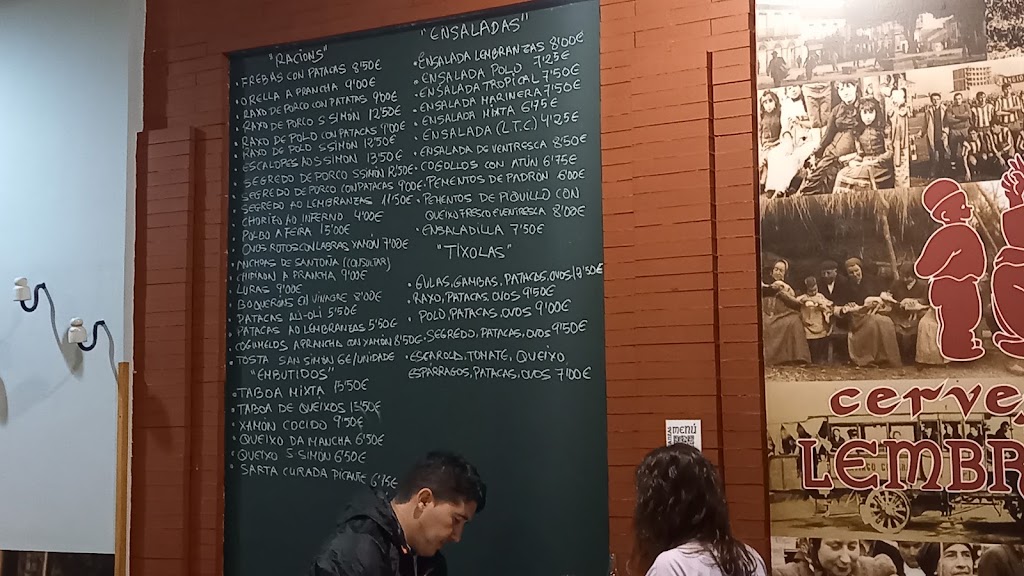 "RACIÓNS"
FREBAS CON PATACAS 8'50€
ORELLA A PRANCHA 9'00€
RAXO DE PORCO CON PATATAS 9'00€
RAXO DE PORCO S SIMON 12'50€
RAXO DE POLO CON PATACAS 9'00€
RAXO DE POLO S SIMON 12'50€
ESCALOPES AO S SIMON 13'50€
SEGREDO DE PORCO S SIMON 12'50€
SEGREDO DE PORCO CON PATACAS 9'00€
SEGREDO AO LEMBRANZAS 11'50€
CHORIZO AO INFERNO 4'00€
POLBO A FEIRA 15'00€
OVOS ROTOS CON LABRAS XAMÓN 7'00€
ANCHOAS DE SANTOÑA (CONSULTAR)
CHIPIRON A PRANCHA 9'00€
LURAS 9'00€
BOQUERÓNS EN VINAGRE 8'00€
PATACAS ALI-OLI 5'50€
PATACAS AO LEMBRANZAS 5'50€
COGUMELOS A PRANCHA CON XAMÓN 8'50€
TOSTA SAN SIMON 6€/UNIDADE
"EMBUTIDOS"
TABOA MIXTA 13'50€
TABOA DE QUEIXOS 13'50€
XAMÓN COCIDO 9'50€
QUEIXO DA MANCHA 6'50€
QUEIXO S SIMON 6'50€
SARTA CURADA PICANTE 6'75€
"ENSALADAS"
ENSALADA LEMBRANZAS 8'00€
ENSALADA POLO 7'25€
ENSALADA TROPICAL 7'50€
ENSALADA MARINERA 7'50€
ENSALADA MIXTA 6'75€
ENSALADA (L.T.C) 4'25€
ENSALADA DE VENTRESCA 8'50€
COGOLLOS CON ATÚN 6'75€
PEMENTOS DE PADRON 6'00€
PEMENTOS DE PIQUILLO CON
QUEIXO FRESCO E VENTRESCA 8'00€
ENSALADILLA 7'50€
"TÍXOLAS"
GULAS, GAMBAS, PATACAS, OVOS
RAXO, PATACAS, OVOS 9'50€
POLO, PATACAS, OVOS 9'00€
SEGREDO, PATACAS, OVOS 9'50€
ESCAROLA, TOMATE, QUEIXO,
ESPÁRRAGOS, PATACAS, OVOS 7'00€
MENÚ
cerve
LEMBR